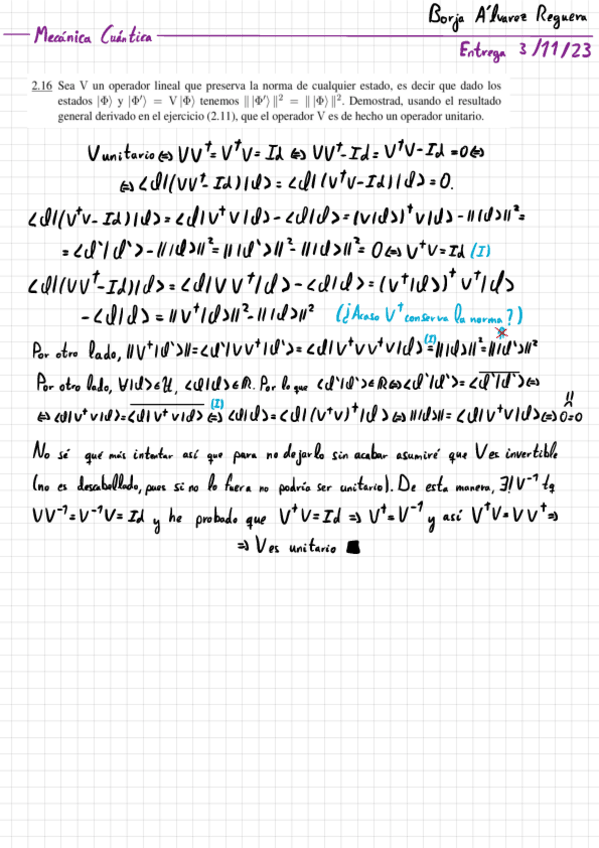 Borja Álvarez Reguera
Mecánica Cuántica
Entrega 3/11/23
2.16 Sea V un operador lineal que preserva la norma de cualquier estado, es decir que dado los
estados |Φ⟩ y |Φ′⟩ = V|Φ⟩ tenemos || |Φ′⟩ ||² = || |Φ⟩ ||². Demostrad, usando el resultado
general derivado en el ejercicio (2.11), que el operador V es de hecho un operador unitario.
V unitario ⇔ VV† = V†V = Id ⇔ VV† - Id = V†V - Id = 0 ⇔
⇔ <ɸ|(VV† - Id)|ɸ> = <ɸ|(V†V - Id)|ɸ> = 0.
<ɸ|(V†V - Id)|ɸ> = <ɸ|V†V|ɸ> - <ɸ|ɸ> = (V|ɸ>)† V|ɸ> - |||ɸ>||² =
= <ɸ'|ɸ'> - |||ɸ>||² = |||ɸ'>||² - |||ɸ>||² = 0 ⇔ V†V = Id (I)
<ɸ|(VV† - Id)|ɸ> = <ɸ|VV†|ɸ> - <ɸ|ɸ> = (V†|ɸ>)† V†|ɸ>
- <ɸ|ɸ> = ||V†|ɸ>||² - |||ɸ>||² (¿Acaso V† conserva la norma?)
Por otro lado, ||V†|ɸ'>|| = <ɸ'|VV†|ɸ'> = <ɸ|V†VV†V|ɸ> (I)= |||ɸ>||² = |||ɸ'>||²
Por otro lado, ∀|ɸ> ∈ H, <ɸ|ɸ> ∈ R. Por lo que <ɸ'|ɸ'> ∈ R ⇔ <ɸ'|ɸ'> = <ɸ'|ɸ'> ⇔
⇔ <ɸ|V†V|ɸ> = <ɸ|V†V|ɸ> (I)⇔ <ɸ|ɸ> = <ɸ|(V†V)†|ɸ> ⇔ |||ɸ>|| = <ɸ|V†V|ɸ> ⇔ 0=0 !!
No sé qué más intentar así que para no dejarlo sin acabar asumiré que V es invertible
(no es descabellado, pues si no lo fuera no podría ser unitario). De esta manera, ∃! V⁻¹ tq
VV⁻¹ = V⁻¹V = Id y he probado que V†V = Id ⇒ V† = V⁻¹ y así V†V = VV† ⇒
⇒ V es unitario ■